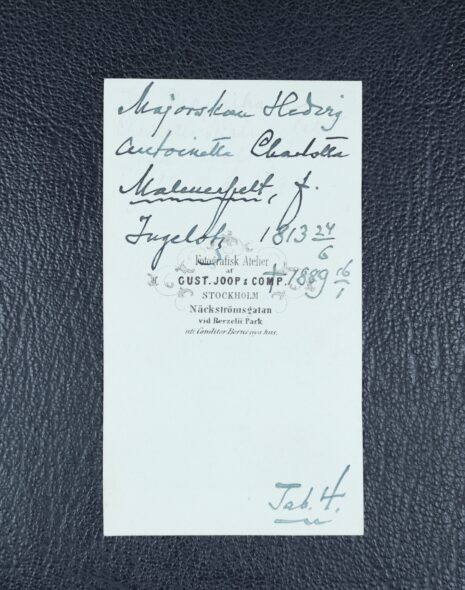 Majorskan Hedvig
Antoinetta Charlotta
Malmerfelt, f.
Ingelotz 1813 24/6
Fotografisk Atelier
af
GUST. JOOP & COMP.
† 1889 16/1
STOCKHOLM
Näckströmsgatan
vid Berzelii Park
uti Conditor Bernsnya hus.
Tab. 4.